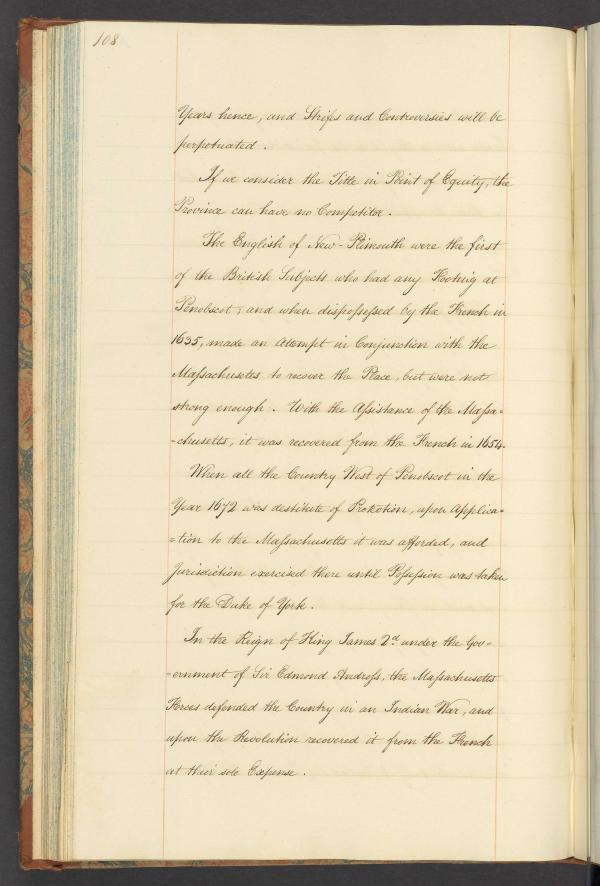 108
Years hence, and Strifes and Controversies will be
perpetuated.
If we consider the Title in Point of Equity, the
Province can have no Competitor.
The English of New-Plimouth were the first
of the British Subjects who had any Footing at
Penobscot, and when dispossessed by the French in
1635, made an Attempt in Conjunction with the
Massachusetts to recover the Place, but were not
strong enough. With the Assistance of the Massa=
-chusetts, it was recovered from the French in 1654.
When all the Country West of Penobscot in the
Year 1672 was destitute of Protection, upon Applica=
=tion to the Massachusetts it was afforded, and
Jurisdiction exercised there until Possession was taken
for the Duke of York.
In the Reign of King James 2d under the Gov-
-ernment of Sir Edmond Andross, the Massachusetts
Forces defended the Country in an Indian War, and
upon the Revolution recovered it from the French
at their sole Expense.